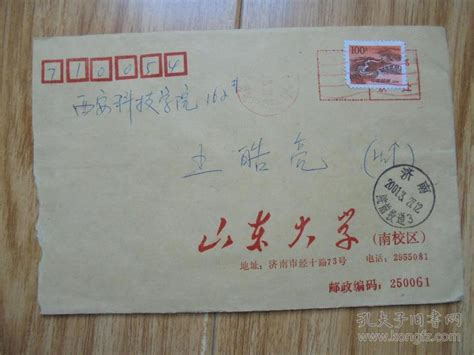 710054
100
西安科技学院 162#
王皓亮 (收)
济南
2001.3.
山东大学 (南校区)
地址：济南市经十路73号 电话：2955081
邮政编码：250061
孔夫子旧书网
www.kongfz.com